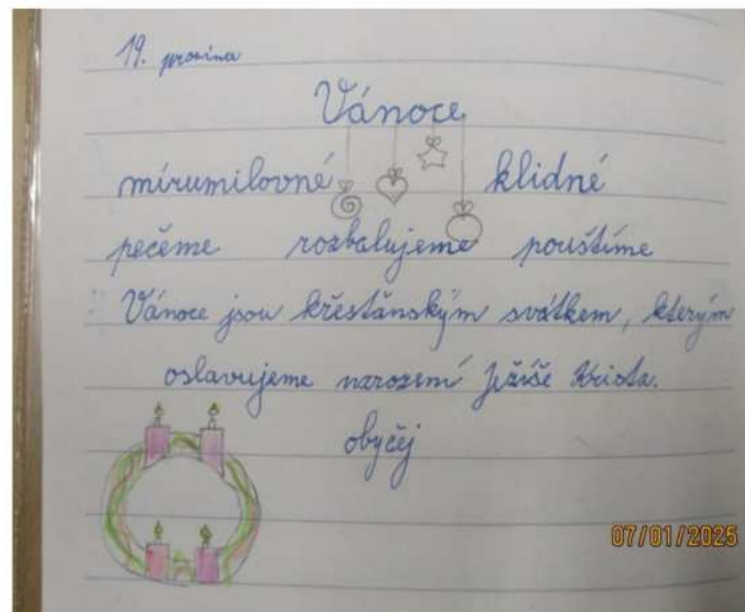 19. prosince
Vánoce
mírumilovné klidné
pečeme rozbalujeme pouštíme
Vánoce jsou křesťanským svátkem, kterým
oslavujeme narození Ježíše Krista.
obyčej
07/01/2025